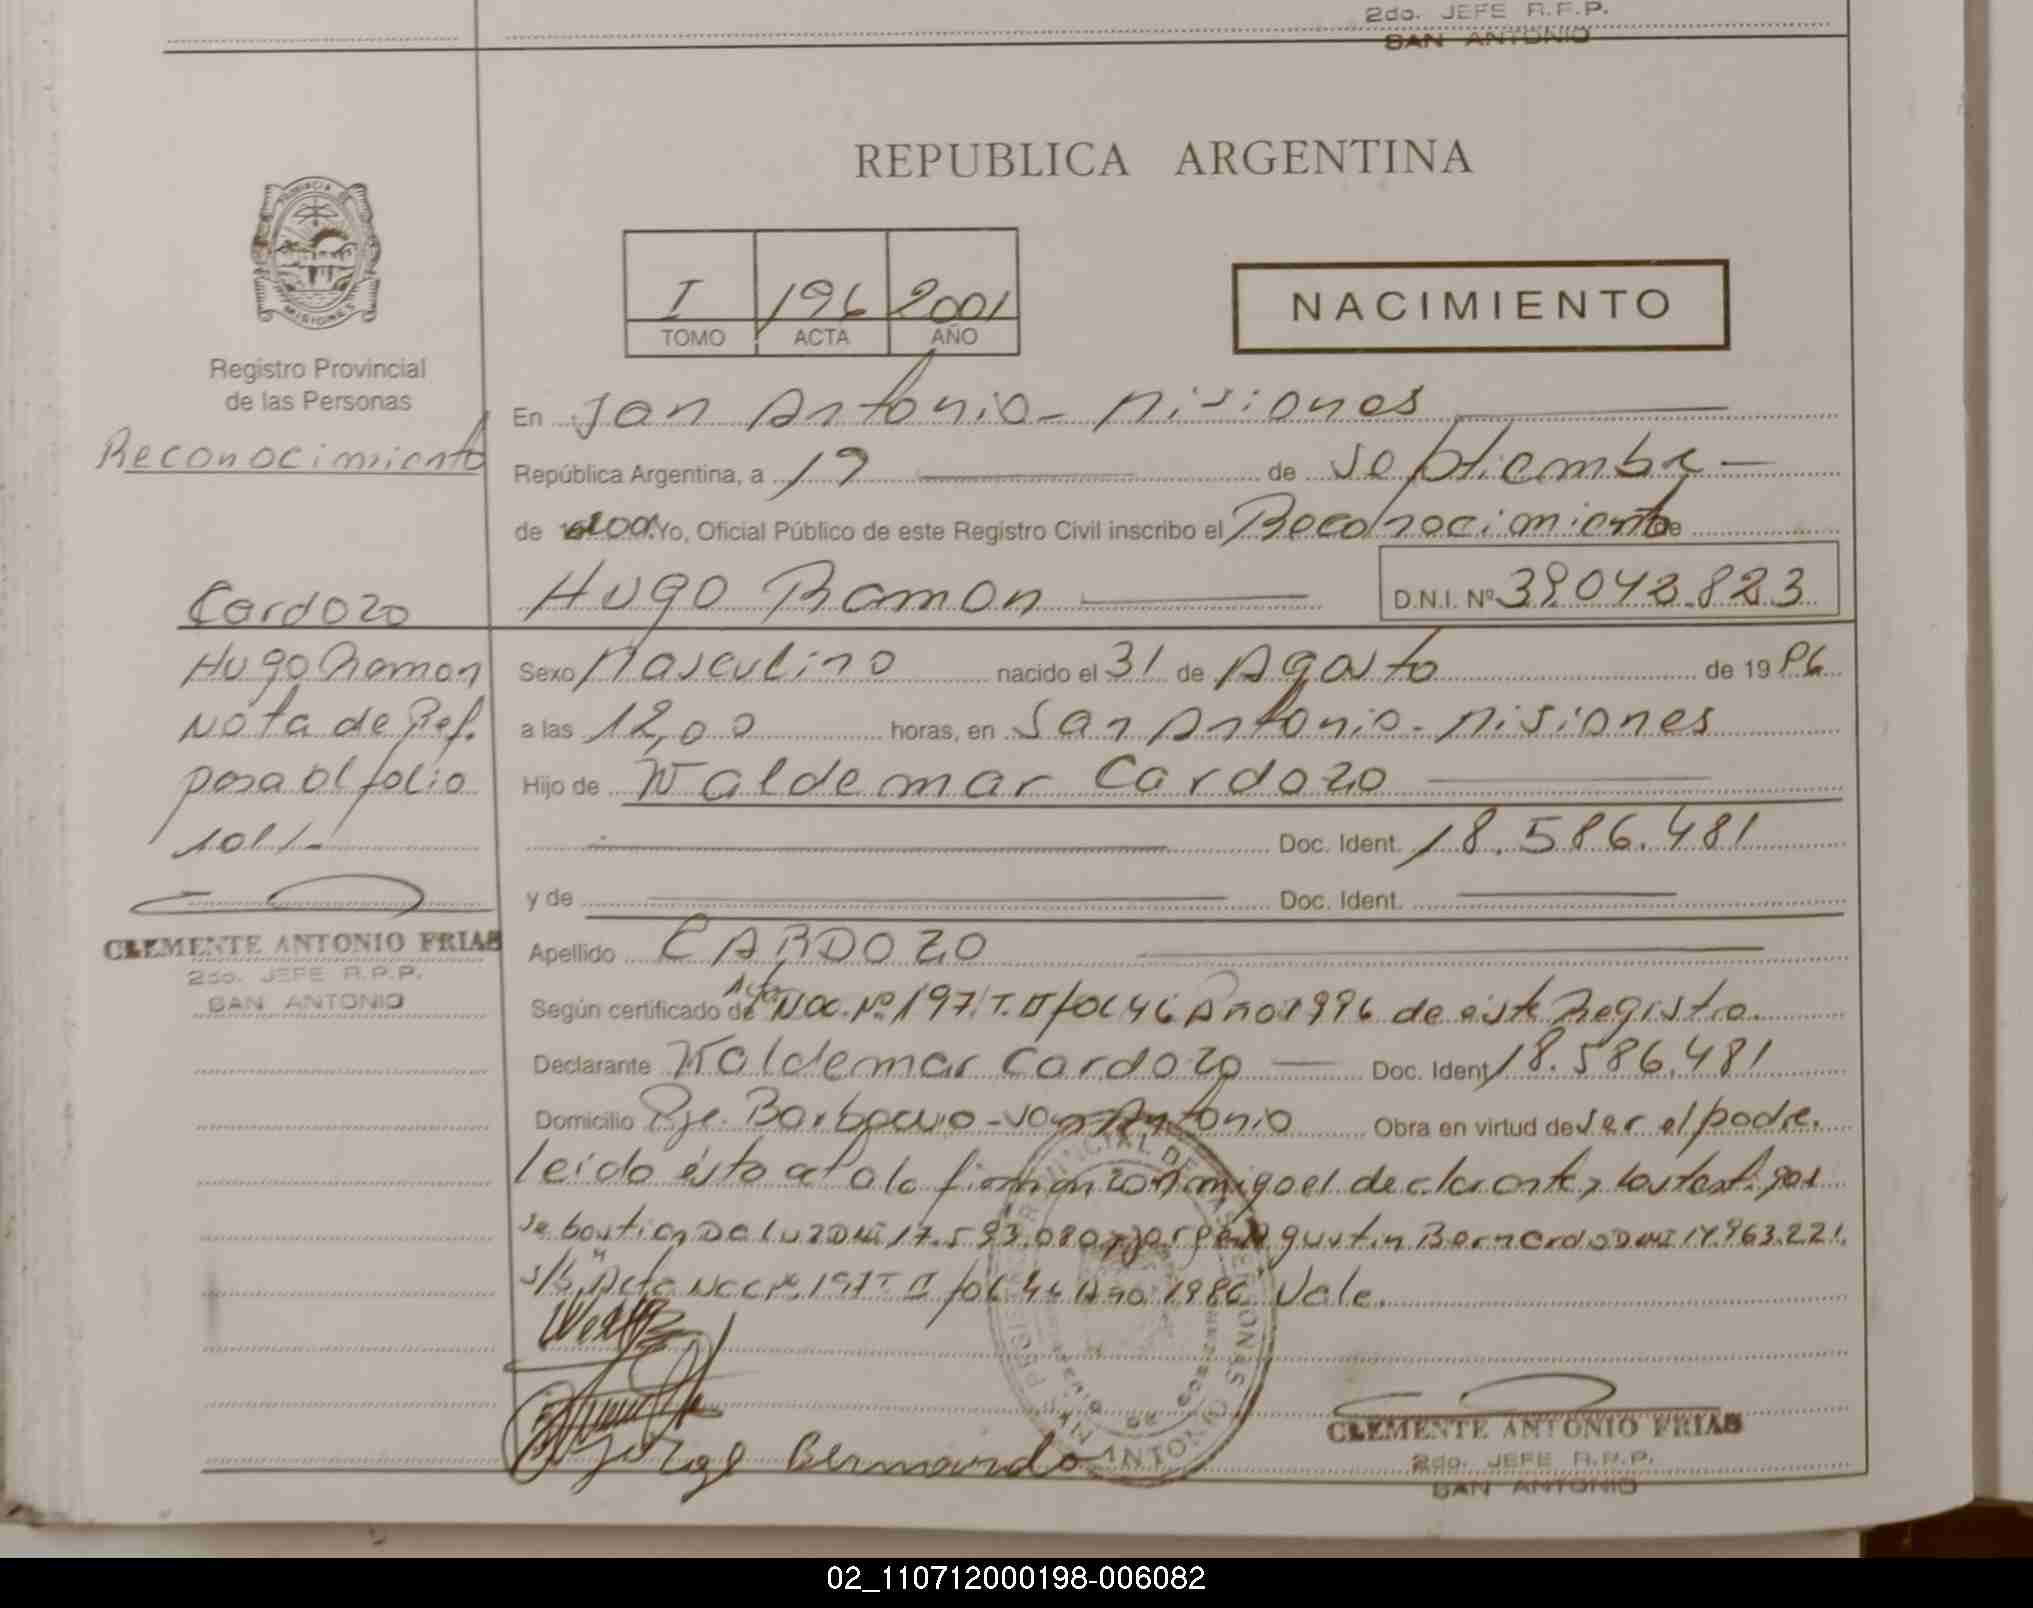 2do. JEFE R.P.P.
SAN ANTONIO
REPUBLICA ARGENTINA
PROVINCIA DE
MISIONES
I 196 2001
TOMO ACTA AÑO
NACIMIENTO
Registro Provincial
de las Personas
Reconocimiento
Cardozo
Hugo Ramon
Nota de Ref.
pasa al folio
101/-
CLEMENTE ANTONIO FRIAS
2do. JEFE R.P.P.
SAN ANTONIO
En San Antonio - Misiones
República Argentina, a 19 de Septiembre
de 2001 Yo, Oficial Público de este Registro Civil inscribo el Reconocimiento de
Hugo Ramon D.N.I. Nº 39.042.823
Sexo Masculino nacido el 31 de Agosto de 19 86
a las 12,00 horas, en San Antonio - Misiones
Hijo de Waldemar Cardozo
Doc. Ident. 18.586.481
y de Doc. Ident.
Apellido CARDOZO
Según certificado de Acta Nac. Nº 197 T. II fol 46 Año 1996 de éste Registro.
Declarante Waldemar Cardozo Doc. Ident 18.586.481
Domicilio Pje. Barbacuo - San Antonio Obra en virtud de ser el padre.
leído ésta acta la firman conmigo el declarante y los testigos
Sebastian Da Luz DNI 17.593.080 y Jorge Agustin Bernardo DNI 14.963.221.
s/b "Acta Nac Nº 197 T II fol 46 Año 1986 Vale.
Jorge Bernardo
CLEMENTE ANTONIO FRIAS
2do. JEFE R.P.P.
SAN ANTONIO
02_110712000198-006082